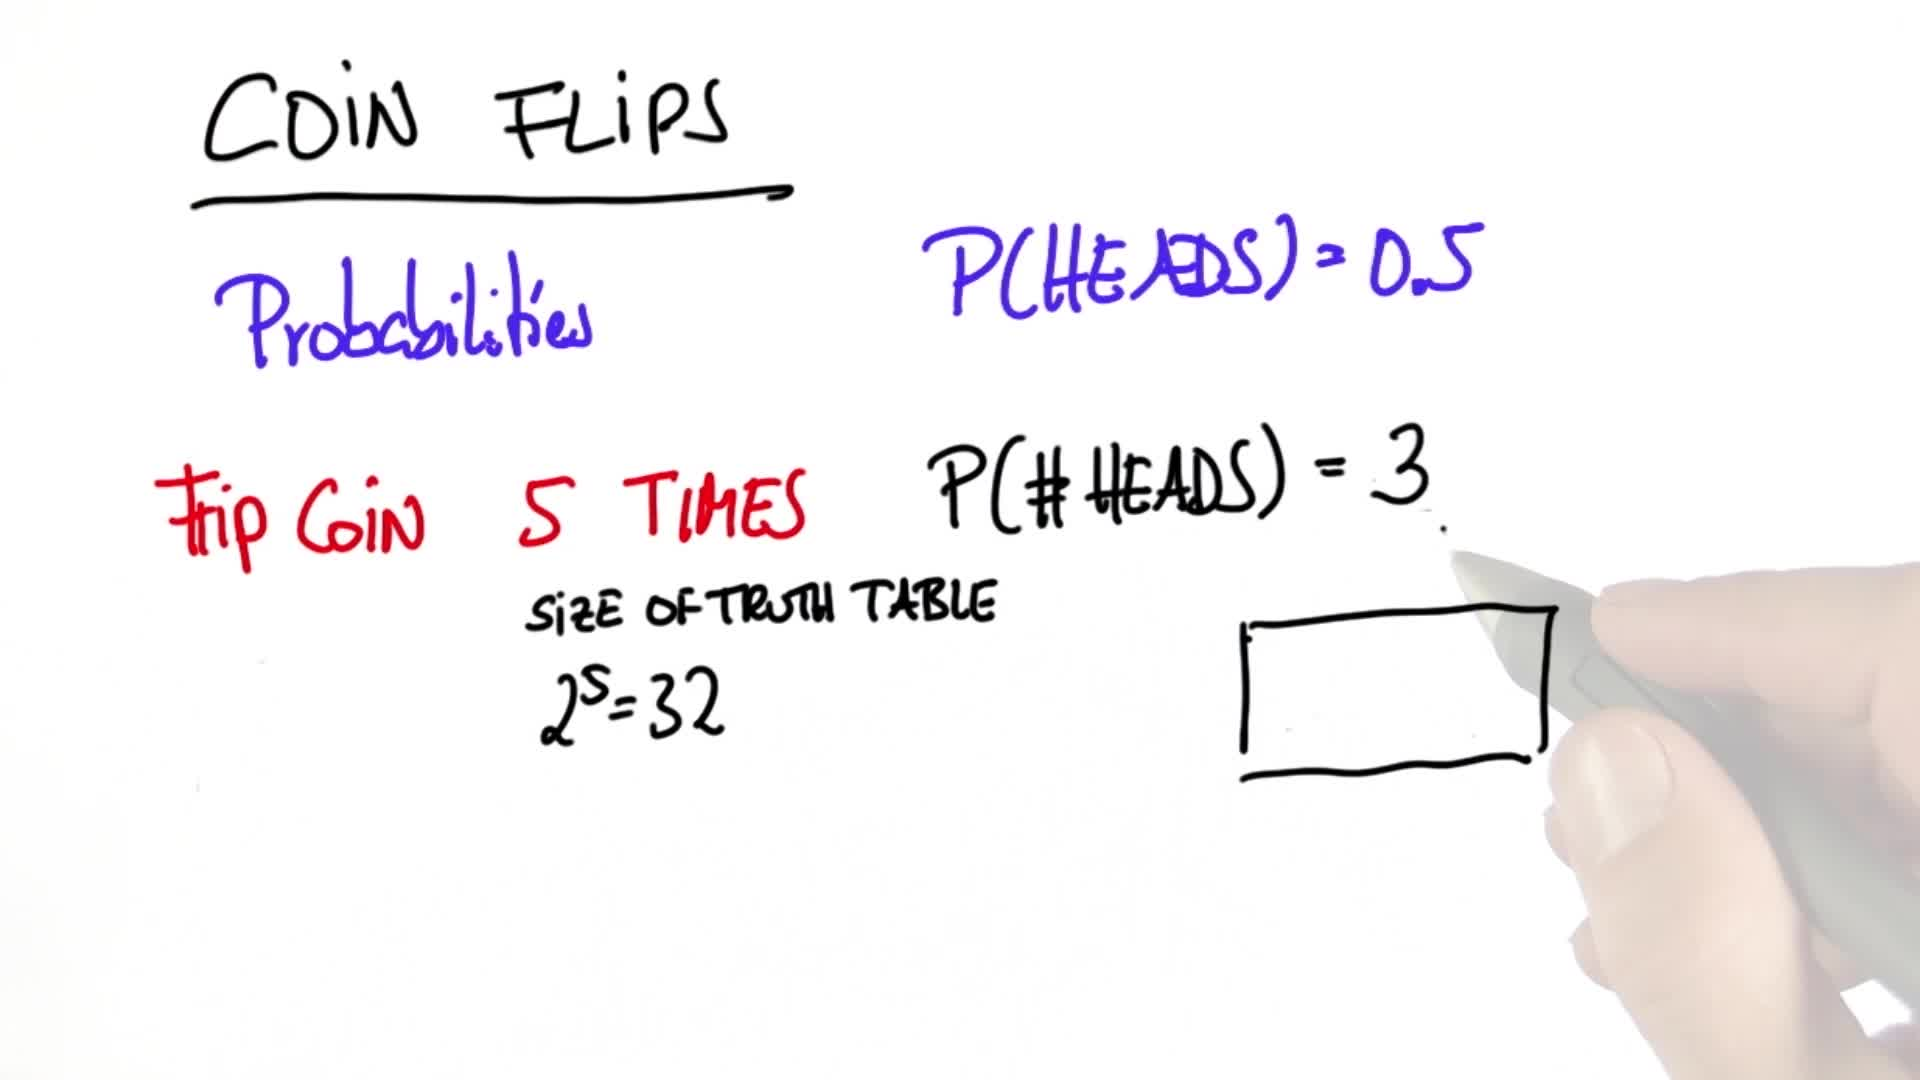 COIN FLIPS
Probabilities
P(HEADS) = 0.5
Flip COIN 5 TIMES
P(# HEADS) = 3
SIZE OF TRUTH TABLE
2⁵=32